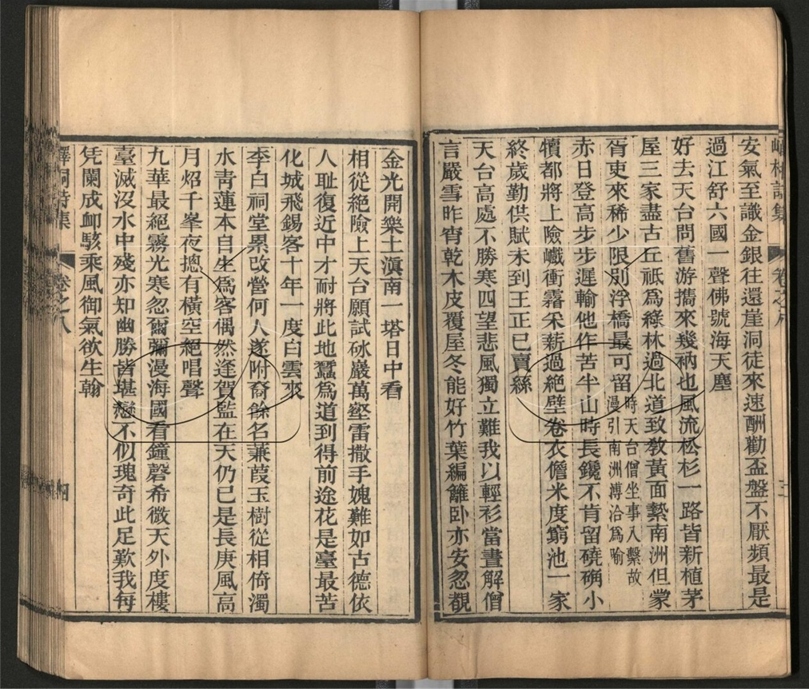 安氣至識金銀往還崖洞徒來速酬勸盃盤不厭頻最是
過江舒六國一聲佛號海天塵
好去天台問舊游攜來幾衲也風流松杉一路皆新植茅
屋三家盡古丘祇為綠林過北道致教黃面繫南洲但蒙
胥吏來稀少限別浮橋最可留時天台僧坐事入繫故
漫引南洲溥洽為喻
赤日登高步步遲輸他作苦半山時長鑱不肯留磽确小
犢都將上險巇衝霧采薪過絕壁卷衣儋米度窮池一家
終歲勤供賦未到王正已賣絲
天台高處不勝寒四望悲風獨立難我以輕衫當晝解僧
言嚴雪昨宵乾木皮覆屋冬能好竹葉編籬卧亦安忽覩
金光開樂土滇南一塔日中看
相從絕險上天台願試砅巖萬壑雷撒手媿難如古德依
人耻復近中才耐將此地蠶為道到得前途花是臺最苦
化城飛錫客十年一度白雲來
李白祠堂累改營何人遂附裔孫名蒹葭玉樹從相倚濁
水青蓮本自生為客偶然逢賀監在天仍已是長庚風高
月炤千峯夜摠有橫空絕唱聲
九華最絕霧光寒忽爾瀰漫海國看鐘磬希微天外度樓
臺滅沒水中殘亦知幽勝皆堪戀不似瑰奇此足歎我每
凭闌成卹駭乘風御氣欲生翰
詩集
卷之八